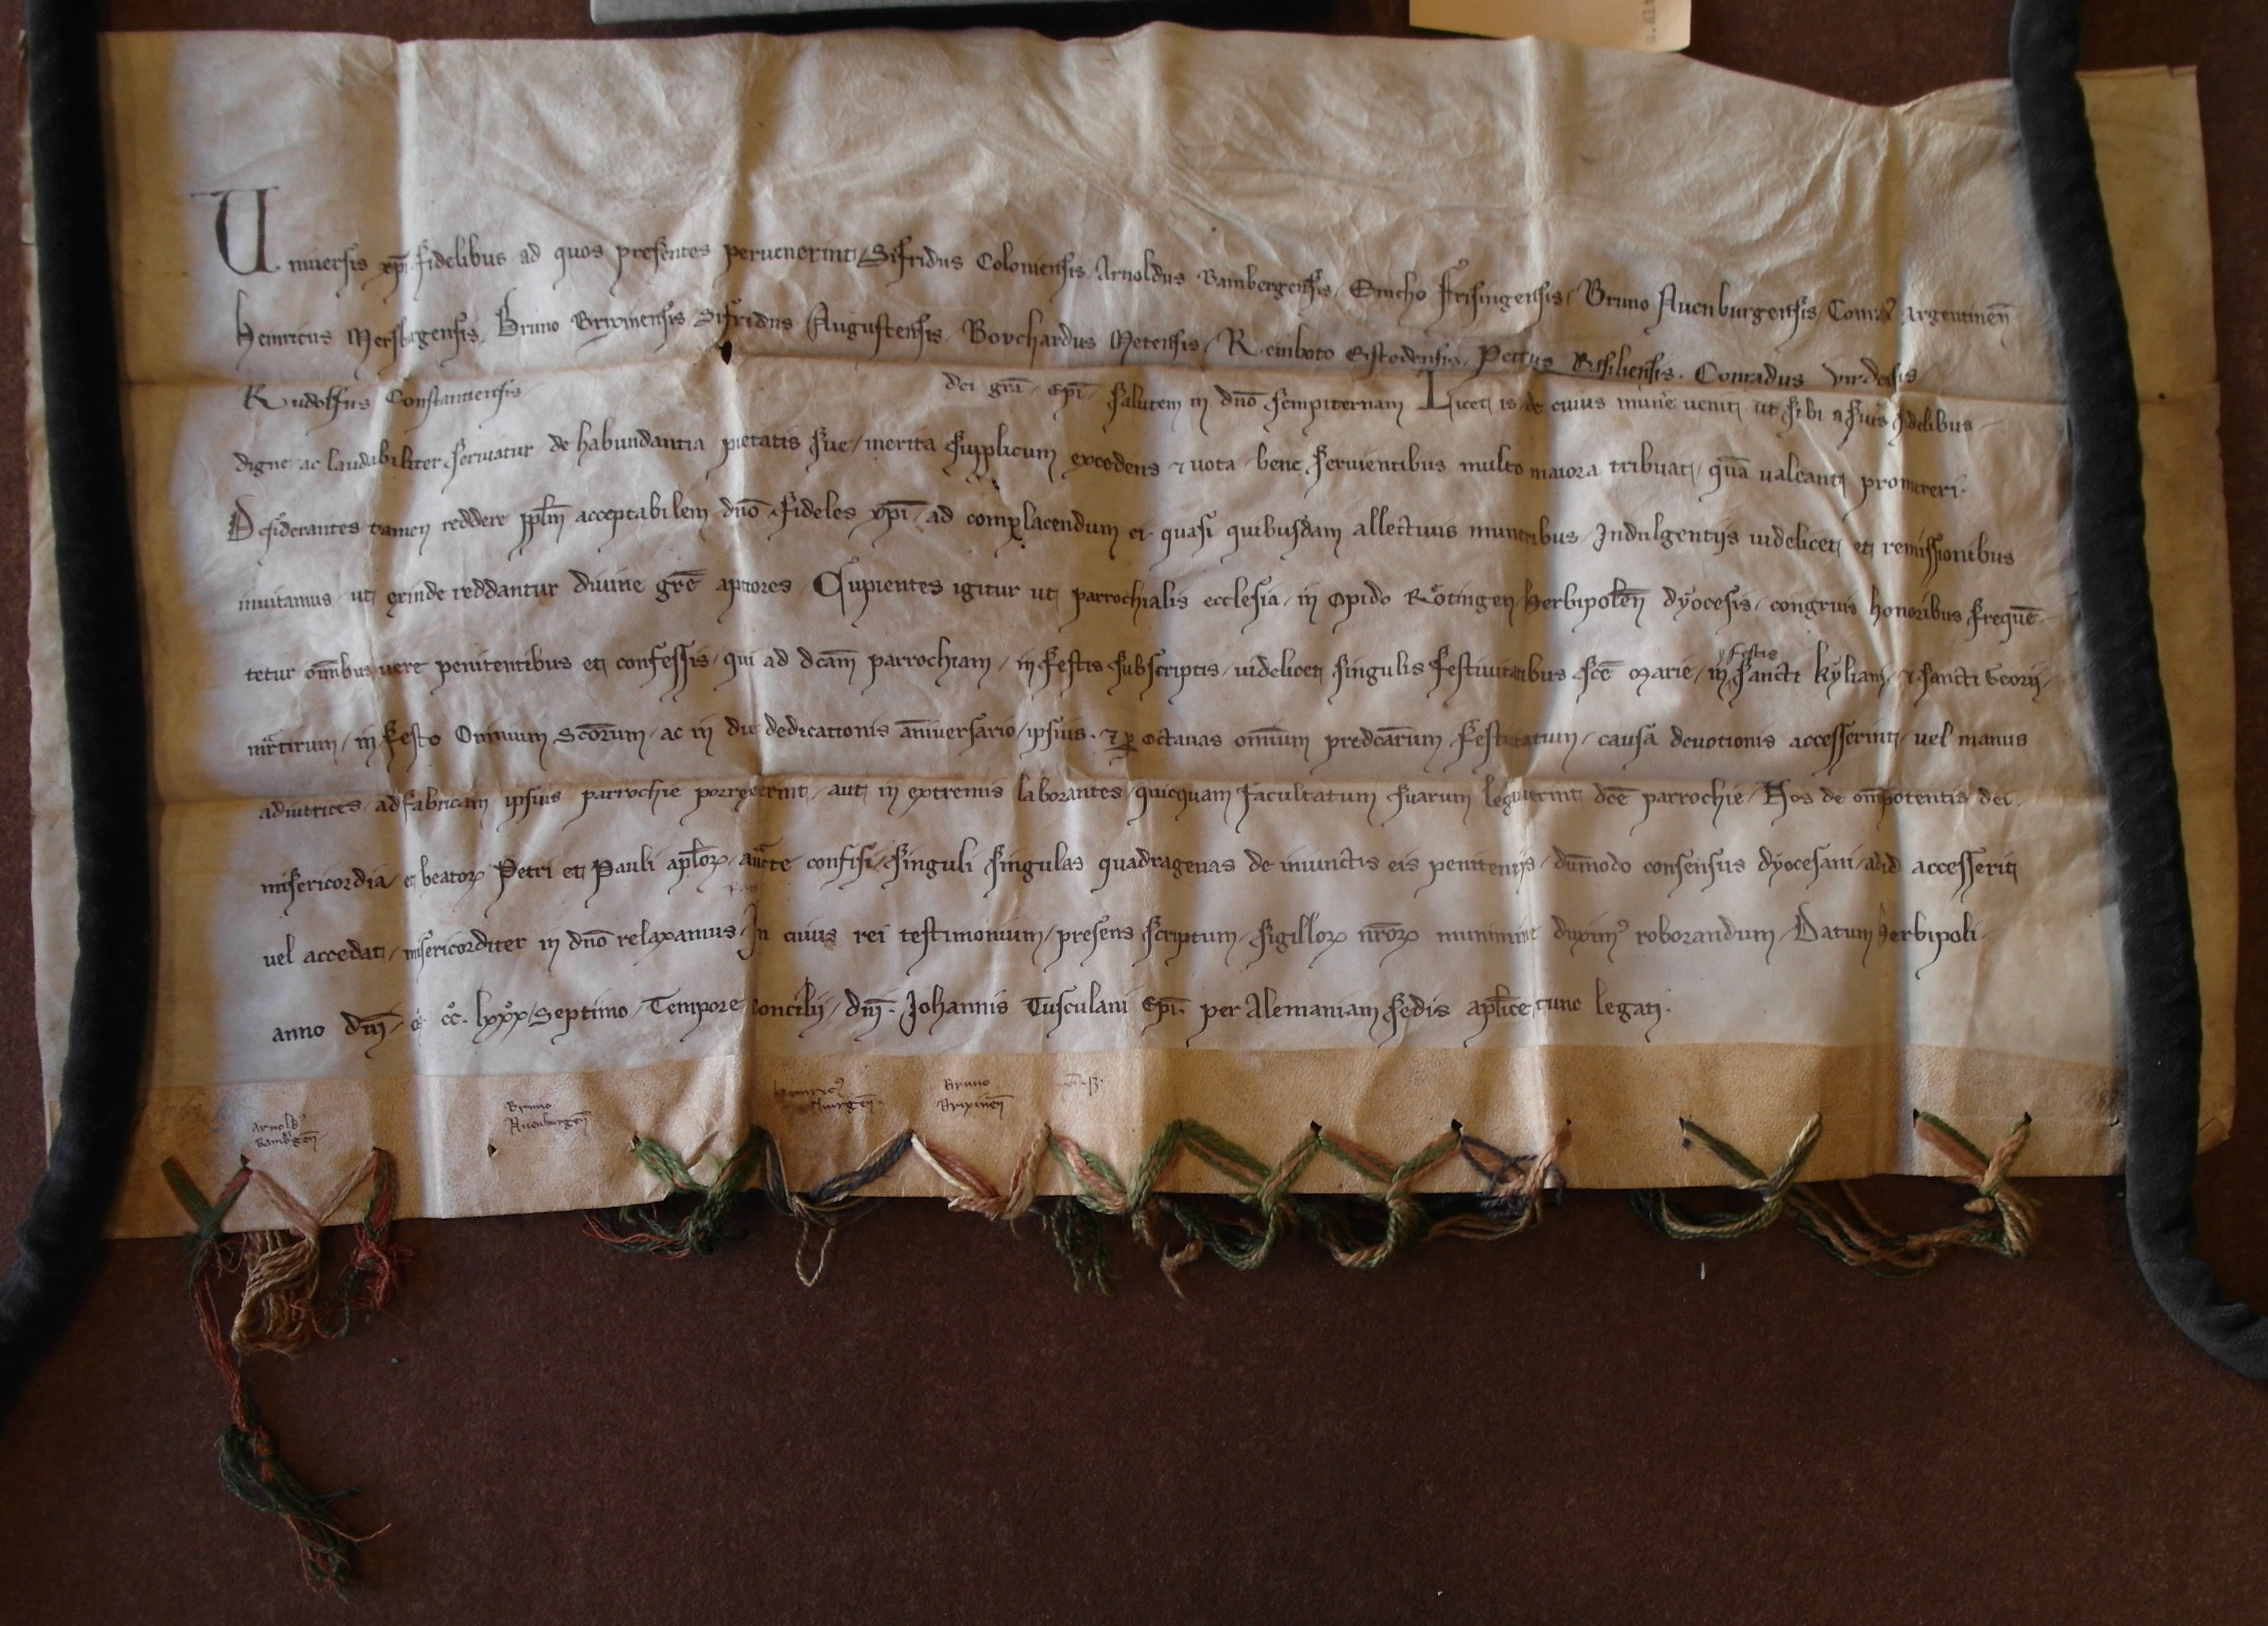 Uniuersis xp̄i fidelibus ad quos presentes peruenerint / Sifridus Coloniensis Arnoldus Bambergensis / Emcho Frisingensis / Bruno Nuenburgensis / Conrad᷒ Argentinen̄
Heinricus Mersburgensis. Bruno Brixinensis Sifridus Augustensis. Bovchardus Metensis / Reinboto Eistedensis. Petrus Basiliensis. Conradus Virdensis
Rudolfus Constantiensis dei gr̄a / ep̄i / salutem in dn̄o sempiternam Licet is de cuius mun̄e uenit ut sibi a suis fidelibus
digne ac laudabiliter seruiatur de habundantia pietatis sue / merita supplicum excedens ⁊ uota bene seruientibus multo maiora tribuat / quā ualeant promereri.
Desiderantes tamen reddere ppl̄m acceptabilem dn̄o fideles xp̄i / ad complacendum ei quasi quibusdam allectiuis muneribus / Indulgentijs uidelicet et remissionibus
inuitamus ut exinde reddantur diuine gr̄e aptiores / Cupientes igitur ut parrochialis ecclesia / in Opido Rotingen / Herbipolen̄ dyocesis / congruis honoribus frequē
tetur om̄ibus uere penitentibus et confessis / qui ad dc̄am parrochiam / in festis subscriptis / uidelicet singulis festiuitatibus sc̄e Marie / in festis sancti kyliani / ⁊ sancti Georij /
mr̄tirum / in festo Omnium Sc̄orum / ac in die dedicationis an̄iuersario / ipsius. ⁊ ꝑ octauas om̄ium predc̄arum festiuitatum / causa deuotionis accesserint / uel manus
adiutrices / ad fabricam ipsius parrochie porrexerint / aut in extremis laborantes / quicquam facultatum suarum legauerint dc̄e parrochie / Nos de om̄ipotentis dei
misericordia / et beatoꝝ Petri et Pauli apl̄oꝝ / auc̄te confisi / singuli singulas quadragenas de iniunctis eis penitentijs / dum̄odo consensus dyocesani / ad id accesserit
uel accedat / misericorditer in dn̄o relaxamus. In cuius rei testimonium / presens scriptum / sigilloꝝ nr̄oꝝ munimine duxim᷒ roborandum / Datum Herbipoli
anno dn̄i / cc̊. lxxx̊ / Septimo / Tempore concilij / dn̄i. Johannis Tusculani Ep̄i. per Alemaniam sedis apl̄ice tunc legati.
Arnold᷒ Bambergen̄
Bruno Nuenburgen̄
Heinric᷒
Bruno Brixinen̄